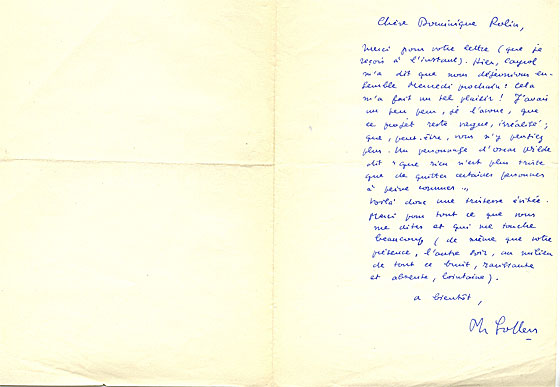 Chère Dominique Rolin,
Merci pour votre lettre (que je
reçois à l'instant). Hier, Cayrol
m'a dit que nous déjeunions en-
semble Mercredi prochain : cela
m'a fait un tel plaisir ! J'avais
un peu peur, je l'avoue, que
ce projet reste vague, irréalisé ;
que, peut-être, vous n'y pensiez
plus. Un personnage d'Oscar Wilde
dit "que rien n'est plus triste
que de quitter certaines personnes
à peine connues...
Voilà donc une tristesse évitée.
Merci pour tout ce que vous
me dites et qui me touche
beaucoup (de même que votre
présence, l'autre soir, au milieu
de tout ce bruit,
et absente, lointaine).
à bientôt,
Ph Sollers